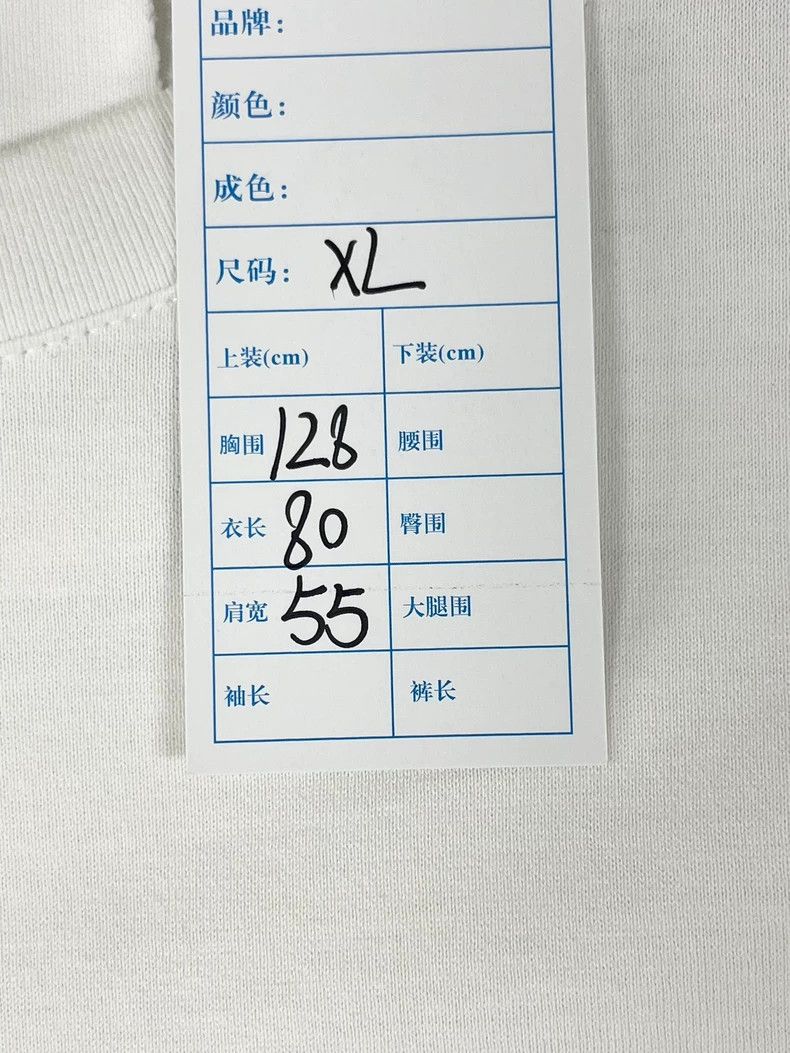 品牌：
颜色：
成色：
尺码： XL
上装(cm) 下装(cm)
胸围 128 腰围
衣长 80 臀围
肩宽 55 大腿围
袖长 裤长